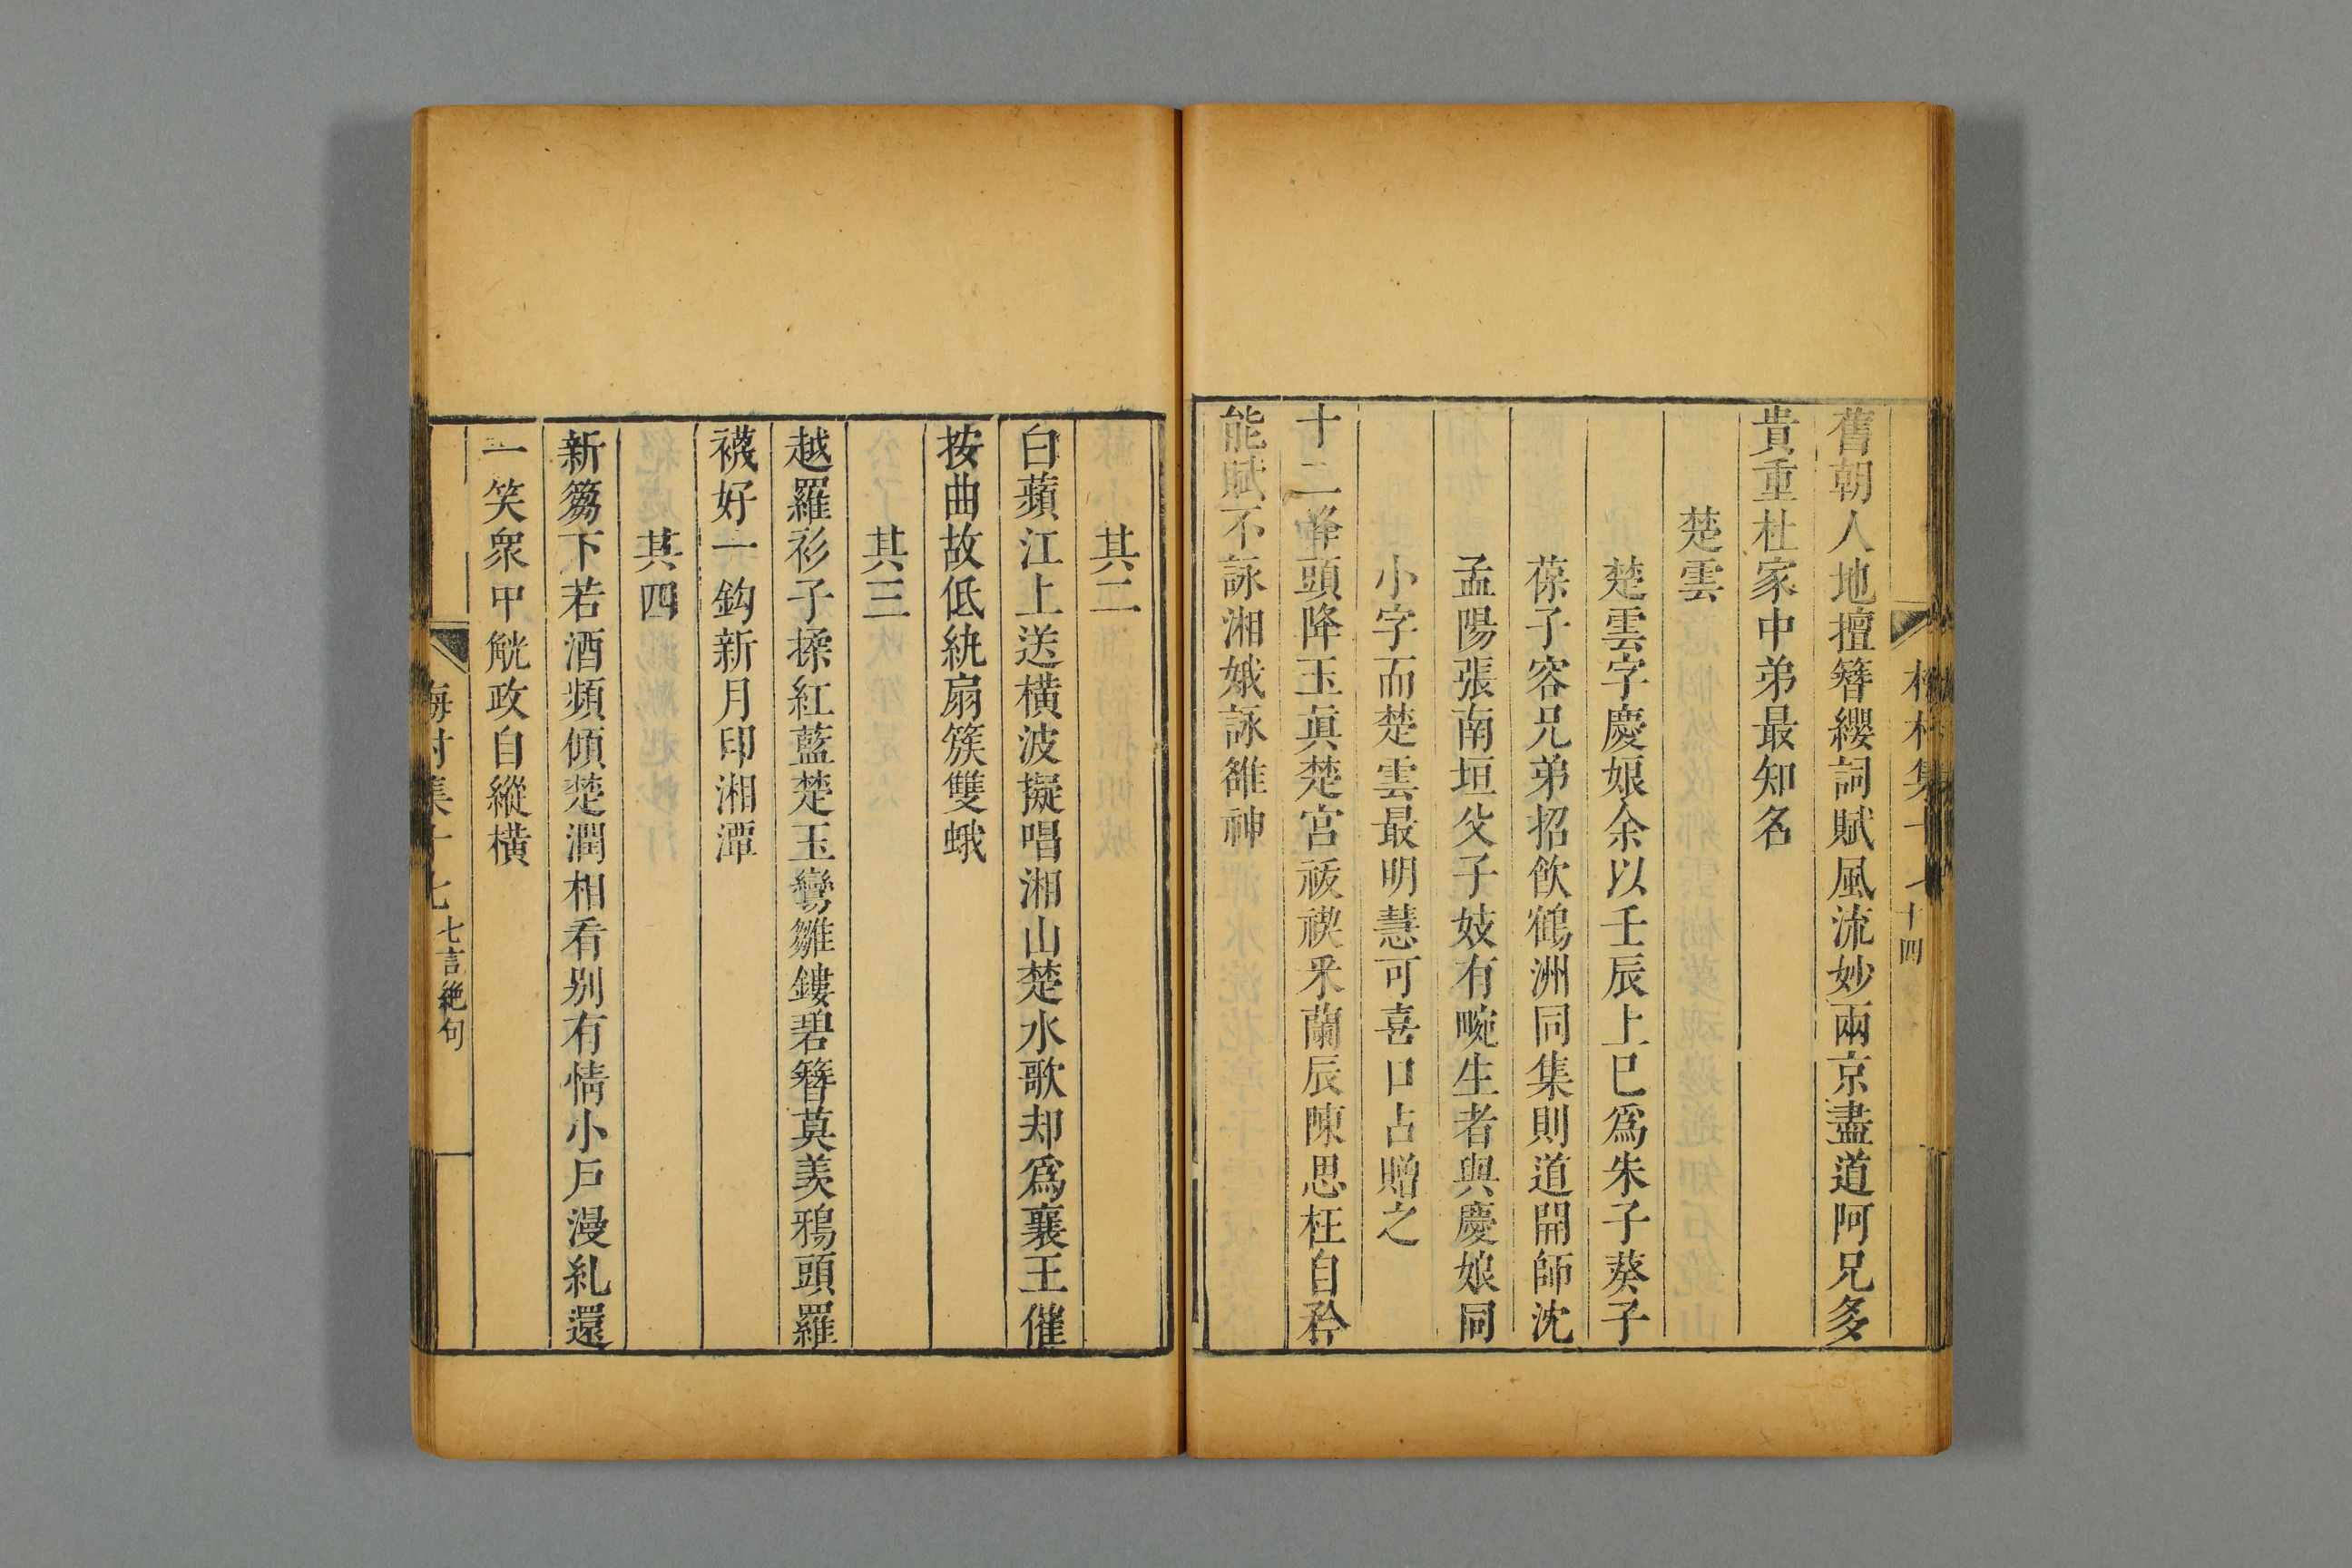 舊朝人地擅簪纓詞賦風流妙兩京盡道阿兄多
貴重杜家中弟最知名
楚雲
楚雲字慶娘余以壬辰上巳爲朱子葵子
葆子容兄弟招飲鶴洲同集則道開師沈
孟陽張南垣父子妓有畹生者與慶娘同
小字而楚雲最明慧可喜口占贈之
十二峰頭降玉眞楚宮祓禊釆蘭辰陳思枉自矜
能賦不詠湘娥詠雒神
十四
其二
白蘋江上送橫波擬唱湘山楚水歌却爲襄王催
按曲故低紈扇簇雙蛾
其三
越羅衫子揉紅藍楚玉鸞雛鏤碧簪莫羨鴉頭羅
襪好一鈎新月印湘潭
其四
新篘下若酒頻傾楚潤相看別有情小戶漫糺還
一笑衆中觥政自縱橫
梅村集十七 七言絕句